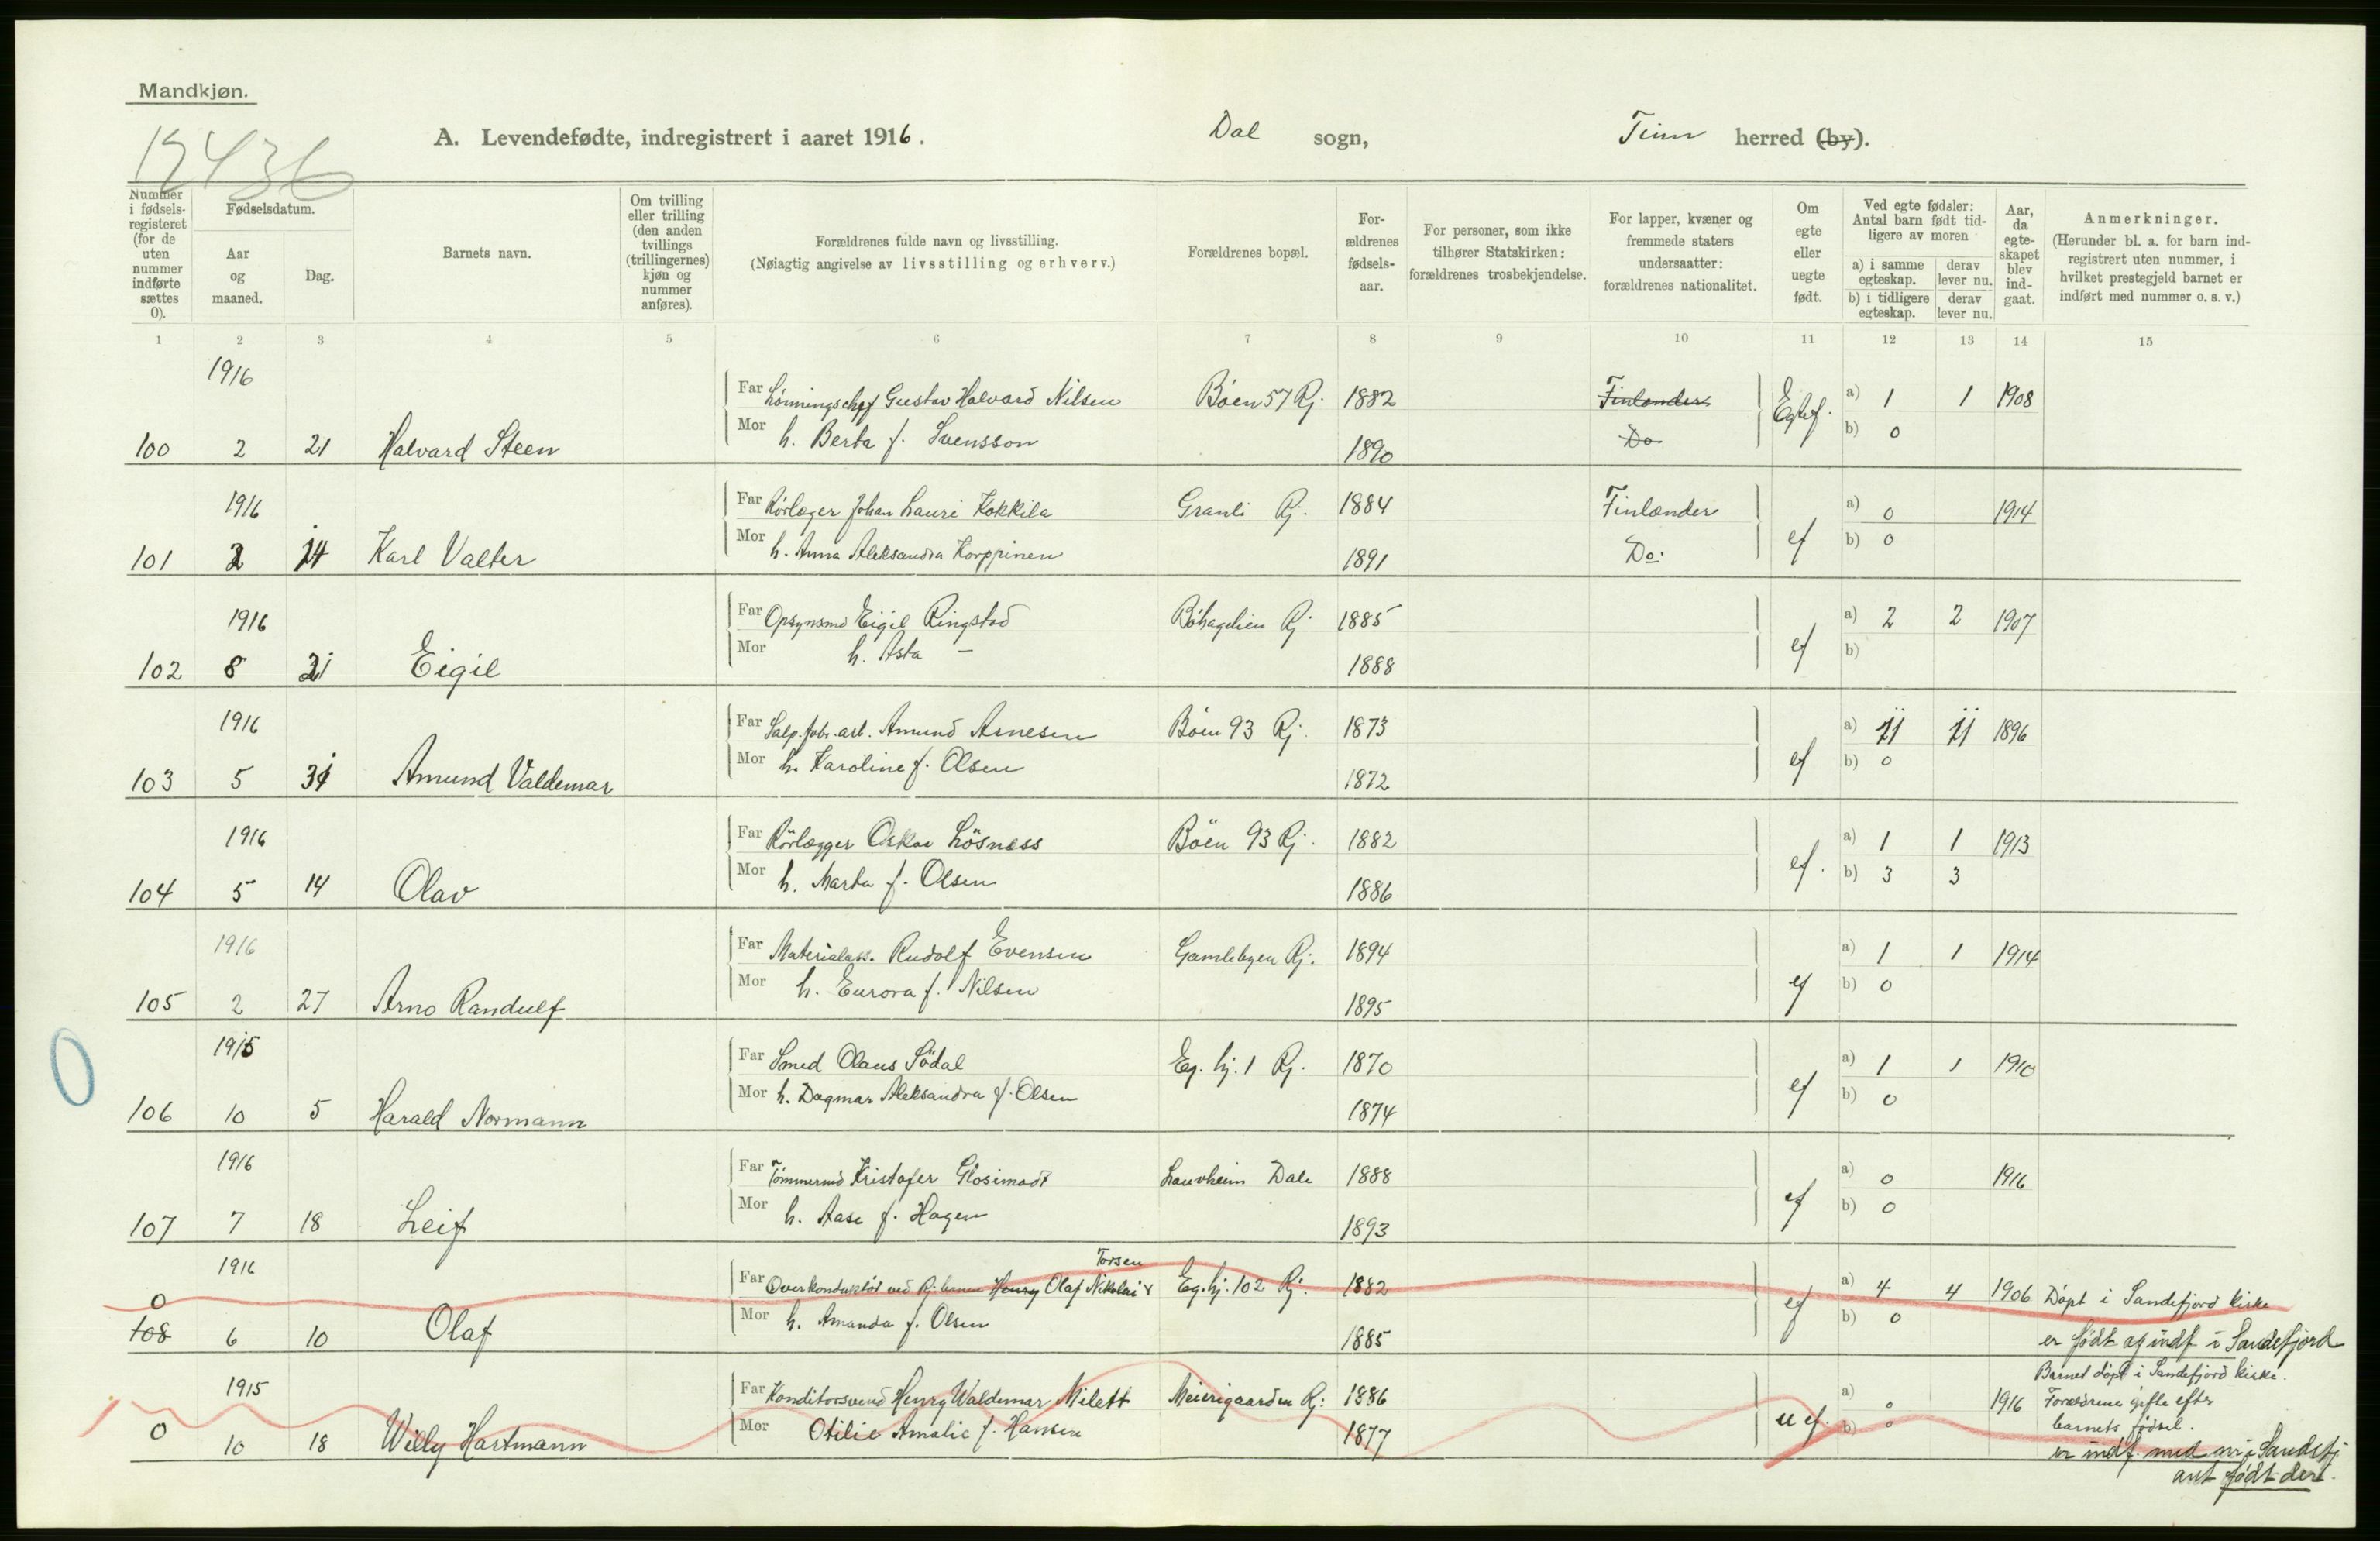 Mandkjøn.
12436
A. Levendefødte, indregistrert i aaret 1916. Dal sogn, Tinn herred (by).
Nummer i fødsels-registeret (for de uten nummer indførte sættes 0).
Fødselsdatum.
Aar og maaned.
Dag.
Barnets navn.
Om tvilling eller trilling (den anden tvillings (trillingernes) kjøn og nummer anføres).
Forældrenes fulde navn og livsstilling.
(Nøiagtig angivelse av livsstilling og erhverv.)
Forældrenes bopæl.
For-ældrenes fødsels-aar.
For personer, som ikke tilhører Statskirken: forældrenes trosbekjendelse.
For lapper, kvæner og fremmede staters undersaatter: forældrenes nationalitet.
Om egte eller uegte født.
Ved egte fødsler: Antal barn født tid-ligere av moren
a) i samme egteskap. derav lever nu.
b) i tidligere egteskap. derav lever nu.
Aar, da egte-skapet blev ind-gaat.
Anmerkninger.
(Herunder bl. a. for barn ind-registrert uten nummer, i hvilket prestegjeld barnet er indført med nummer o. s. v.)
1 2 3 4 5 6 7 8 9 10 11 12 13 14 15
1916 Far Lønningschef Gustav Halvard Nilsen Bøen 57 Rj. 1882 Finlænder Egtef. a) 1 1 1908
100 2 21 Halvard Steen Mor h. Berta f. Svensson 1890 Do b) 0
1916 Far Rørlæger Johan Lauri Kokkila Granli Rj. 1884 Finlænder ef a) 0 1914
101 2 14 Karl Valter Mor h. Anna Aleksandra Korppinen 1891 Do. b) 0
1916 Far Opsynsmd Eigil Ringstad Bøhagelien Rj 1885 ef a) 2 2 1907
102 8 21 Eigil Mor h. Asta — 1888 b)
1916 Far Salp.fabr.arb. Amund Arnesen Bøen 93 Rj. 1873 ef a) 11 11 1896
103 5 31 Amund Valdemar Mor h. Karoline f. Olsen 1872 b) 0
1916 Far Rörlægger Oskar Lösness Böen 93 Rj. 1882 ef. a) 1 1 1913
104 5 14 Olav Mor h. Marta f. Olsen 1886 b) 3 3
1916 Far Materialass. Rudolf Evensen Gamlebyen Rj. 1894 ef a) 1 1 1914
105 2 27 Arno Randulf Mor h. Eurora f. Nilsen 1895 b) 0
0
1915 Far Smed Olaus Södal Eg. hj. 1 Rj. 1870 ef a) 1 1 1910
106 10 5 Harald Normann Mor h. Dagmar Aleksandra f. Olsen 1874 b) 0
1916 Far Tømmermd Kristofer Glosimodt Lauvheim Dale 1888 ef a) 0 1916
107 7 18 Leif Mor h. Aase f. Hagen 1893 b) 0
Torsen
1916 Far Overkonduktör ved Rj. banen Henry Olaf Nikolai Eg. hj. 102 Rj. 1882 ef a) 4 4 1906 Døpt i Sandefjord kirke
0
108 6 10 Olaf Mor h. Amanda f. Olsen 1885 b) 0 er født og indf i Sandefjord
1915 Far Konditorsvend Henry Waldemar Milett Meierigaarden Rj. 1886 u ef. a) 0 1916 Barnet døpt i Sandefjord kirke.
Forældrene gifte efter
barnets fødsel.
0 10 18 Willy Hartmann Mor Otilie Amalie f. Hansen 1877 b) 0 er indf. med nr i Sandefj
ant født der.